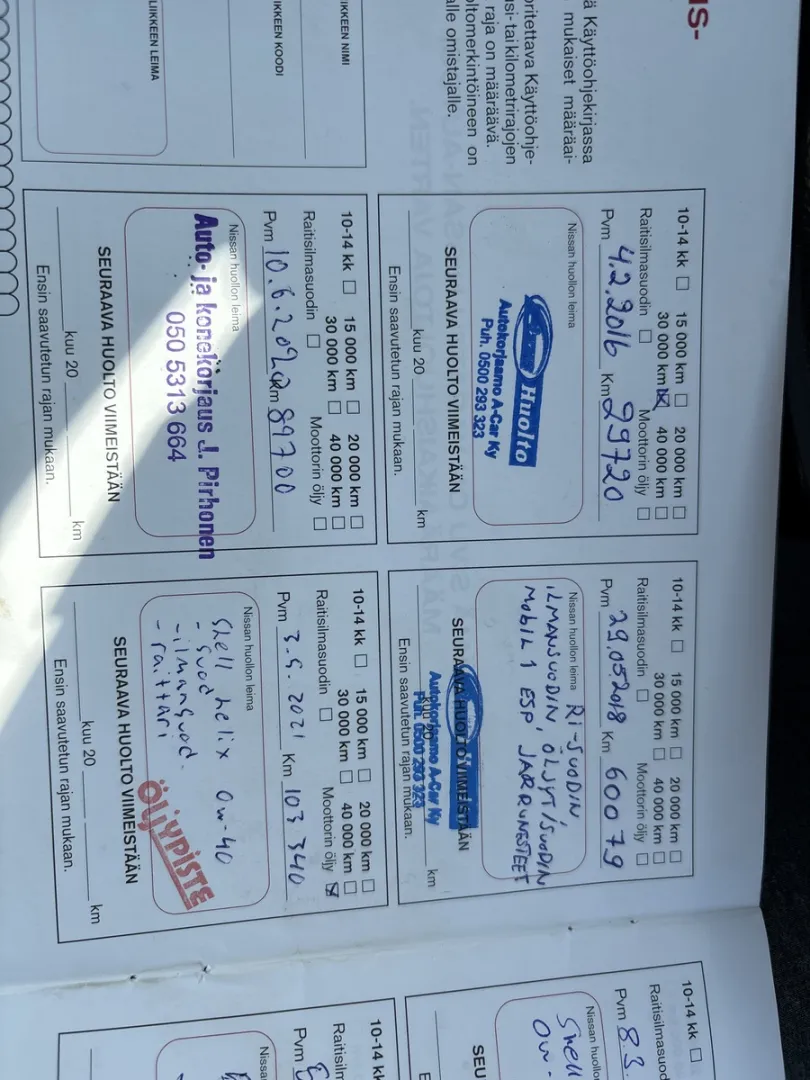 IS-
ä Käyttöohjekirjassa
mukaiset määräai-
oritettava Käyttöohje-
si- tai kilometrirajojen
raja on määräävä.
ltomerkintöineen on
alle omistajalle.
IKKEEN NIMI
IKKEEN KOODI
LIIKKEEN LEIMA
10-14 kk 15 000 km 20 000 km
30 000 km 40 000 km
Raitisilmasuodin Moottorin öljy
Pvm 4.2.2016 Km 29720
Nissan huollon leima
Huolto
Autokorjaamo A-Car Ky
Puh. 0500 293 323
SEURAAVA HUOLTO VIIMEISTÄÄN
kuu 20 km
Ensin saavutetun rajan mukaan.
10-14 kk 15 000 km 20 000 km
30 000 km 40 000 km
Raitisilmasuodin Moottorin öljy
Pvm 29.05.2018 Km 60079
Nissan huollon leima
RI-SUODIN,
ILMANSUODIN, ÖLJYT/SUODIN
MOBIL 1 ESP JARRUNESTEET
SEURAAVA HUOLTO VIIMEISTÄÄN
kuu 20 km
Autokorjaamo A-Car Ky
Puh. 0500 293 323
Ensin saavutetun rajan mukaan.
10-14 kk 15 000 km 20 000 km
30 000 km 40 000 km
Raitisilmasuodin Moottorin öljy
Pvm 10.6.2020 Km 89700
Nissan huollon leima
Auto- ja konekorjaus J. Pirhonen
050 5313 664
SEURAAVA HUOLTO VIIMEISTÄÄN
kuu 20 km
Ensin saavutetun rajan mukaan.
10-14 kk 15 000 km 20 000 km
30 000 km 40 000 km
Raitisilmasuodin Moottorin öljy
Pvm 3.5.2021 Km 103 340
Nissan huollon leima
Shell helix 0w-40
- suod
- ilmansuod.
- raittari
ÖLJYPISTE
SEURAAVA HUOLTO VIIMEISTÄÄN
kuu 20 km
Ensin saavutetun rajan mukaan.
10-14 kk
Raitisilmasuod
Pvm 8.3.
Nissan huollo
Shell
0w-
SEU
E
10-14 kk
Raitisilm
Pvm
Nissa